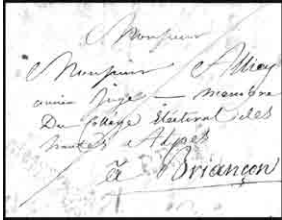 Monsieur
Monsieur Alliey
ancien Juge — membre
Du College électoral des
hautes Alpes
à Briançon